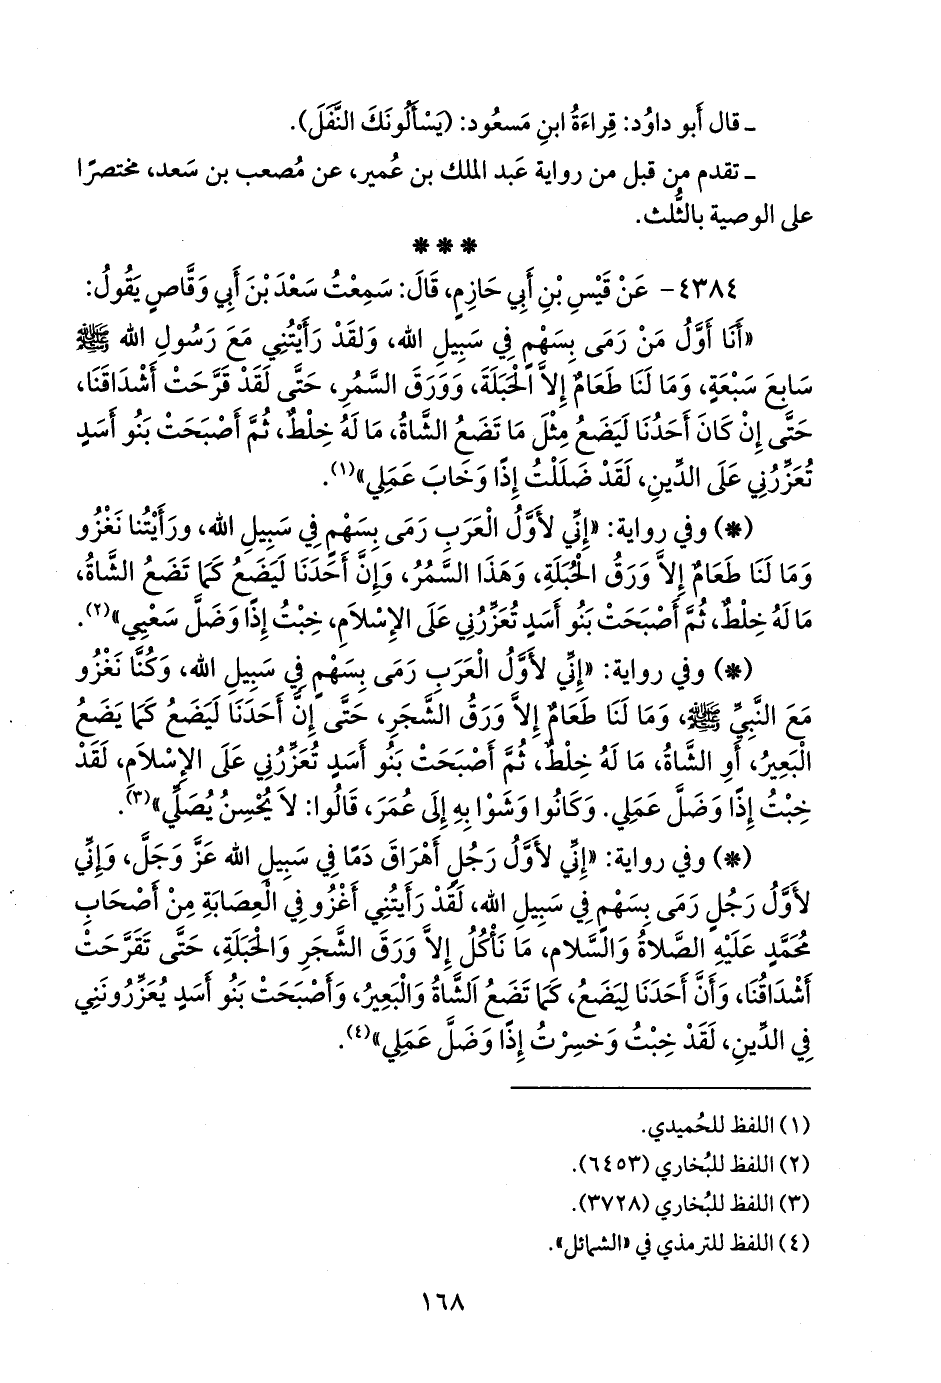 ـ قال أَبو داوُد: قِراءَةُ ابنِ مَسعُود: (يَسْأَلُونَكَ النَّفَلَ).
ـ تقدم من قبل من رواية عَبد الملك بن عُمير، عن مُصعب بن سَعد، مختصرًا
على الوصية بالثُّلث.
* * *
٤٣٨٤- عَنْ قَيْسِ بْنِ أَبِي حَازِمٍ، قَالَ: سَمِعْتُ سَعْدَ بْنَ أَبِي وَقَّاصٍ يَقُولُ:
«أَنَا أَوَّلُ مَنْ رَمَى بِسَهْمٍ فِي سَبِيلِ الله، وَلَقَدْ رَأَيْتُنِي مَعَ رَسُولِ الله ﷺ
سَابِعَ سَبْعَةٍ، وَمَا لَنَا طَعَامٌ إِلاَّ الْحَبَلَةَ، وَوَرَقَ السَّمُرِ، حَتَّى لَقَدْ قَرَّحَتْ أَشْدَاقَنَا،
حَتَّى إِنْ كَانَ أَحَدُنَا لَيَضَعُ مِثْلَ مَا تَضَعُ الشَّاةُ، مَا لَهُ خِلْطٌ، ثُمَّ أَصْبَحَتْ بَنُو أَسَدٍ
تُعَزِّرُنِي عَلَى الدِّينِ، لَقَدْ ضَلَلْتُ إِذًا وَخَابَ عَمَلِي»(١).
(*) وفي رواية: «إِنِّي لأَوَّلُ الْعَرَبِ رَمَى بِسَهْمٍ فِي سَبِيلِ الله، ورَأَيْتُنا نَغْزُو
وَمَا لَنَا طَعَامٌ إِلاَّ وَرَقُ الْحُبَلَةِ، وَهَذَا السَّمُرُ، وَإِنَّ أَحَدَنَا لَيَضَعُ كَمَا تَضَعُ الشَّاةُ،
مَا لَهُ خِلْطٌ، ثُمَّ أَصْبَحَتْ بَنُو أَسَدٍ تُعَزِّرُنِي عَلَى الإِسْلاَمِ، خِبْتُ إِذًا وَضَلَّ سَعْيِي»(٢).
(*) وفي رواية: «إِنِّي لأَوَّلُ الْعَرَبِ رَمَى بِسَهْمٍ فِي سَبِيلِ الله، وَكُنَّا نَغْزُو
مَعَ النَّبِيِّ ﷺ، وَمَا لَنَا طَعَامٌ إِلاَّ وَرَقُ الشَّجَرِ، حَتَّى إِنَّ أَحَدَنَا لَيَضَعُ كَمَا يَضَعُ
الْبَعِيرُ، أَوِ الشَّاةُ، مَا لَهُ خِلْطٌ، ثُمَّ أَصْبَحَتْ بَنُو أَسَدٍ تُعَزِّرُنِي عَلَى الإِسْلاَمِ، لَقَدْ
خِبْتُ إِذًا وَضَلَّ عَمَلِي. وَكَانُوا وَشَوْا بِهِ إِلَى عُمَرَ، قَالُوا: لاَ يُحْسِنُ يُصَلِّي»(٣).
(*) وفي رواية: «إِنِّي لأَوَّلُ رَجُلٍ أَهْرَاقَ دَمًا فِي سَبِيلِ الله عَزَّ وَجَلَّ، وَإِنِّي
لأَوَّلُ رَجُلٍ رَمَى بِسَهْمٍ فِي سَبِيلِ الله، لَقَدْ رَأَيْتُنِي أَغْزُو فِي الْعِصَابَةِ مِنْ أَصْحَابِ
مُحَمَّدٍ عَلَيْهِ الصَّلاَةُ وَالسَّلاَم، مَا نَأْكُلُ إِلاَّ وَرَقَ الشَّجَرِ وَالْحَبَلَةِ، حَتَّى تَقَرَّحَتْ
أَشْدَاقُنَا، وَأَنَّ أَحَدَنَا لِيَضَعُ، كَمَا تَضَعُ الشَّاةُ وَالْبَعِيرُ، وَأَصْبَحَتْ بَنُو أَسَدٍ يُعَزِّرُونَنِي
فِي الدِّينِ، لَقَدْ خِبْتُ وَخَسِرْتُ إِذًا وَضَلَّ عَمَلِي»(٤).
(١) اللفظ للحُميدي.
(٢) اللفظ للبُخاري (٦٤٥٣).
(٣) اللفظ للبُخاري (٣٧٢٨).
(٤) اللفظ للترمذي في «الشمائل».
١٦٨